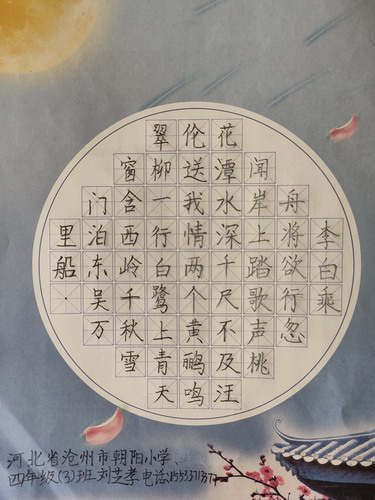 李白乘
舟将欲行忽
闻岸上踏歌声桃
花潭水深千尺不及汪
伦送我情两个黄鹂鸣
翠柳一行白鹭上青天
窗含西岭千秋雪
门泊东吴万
里船.
河北省沧州市朝阳小学
四年级(3)班刘芝孝电话: